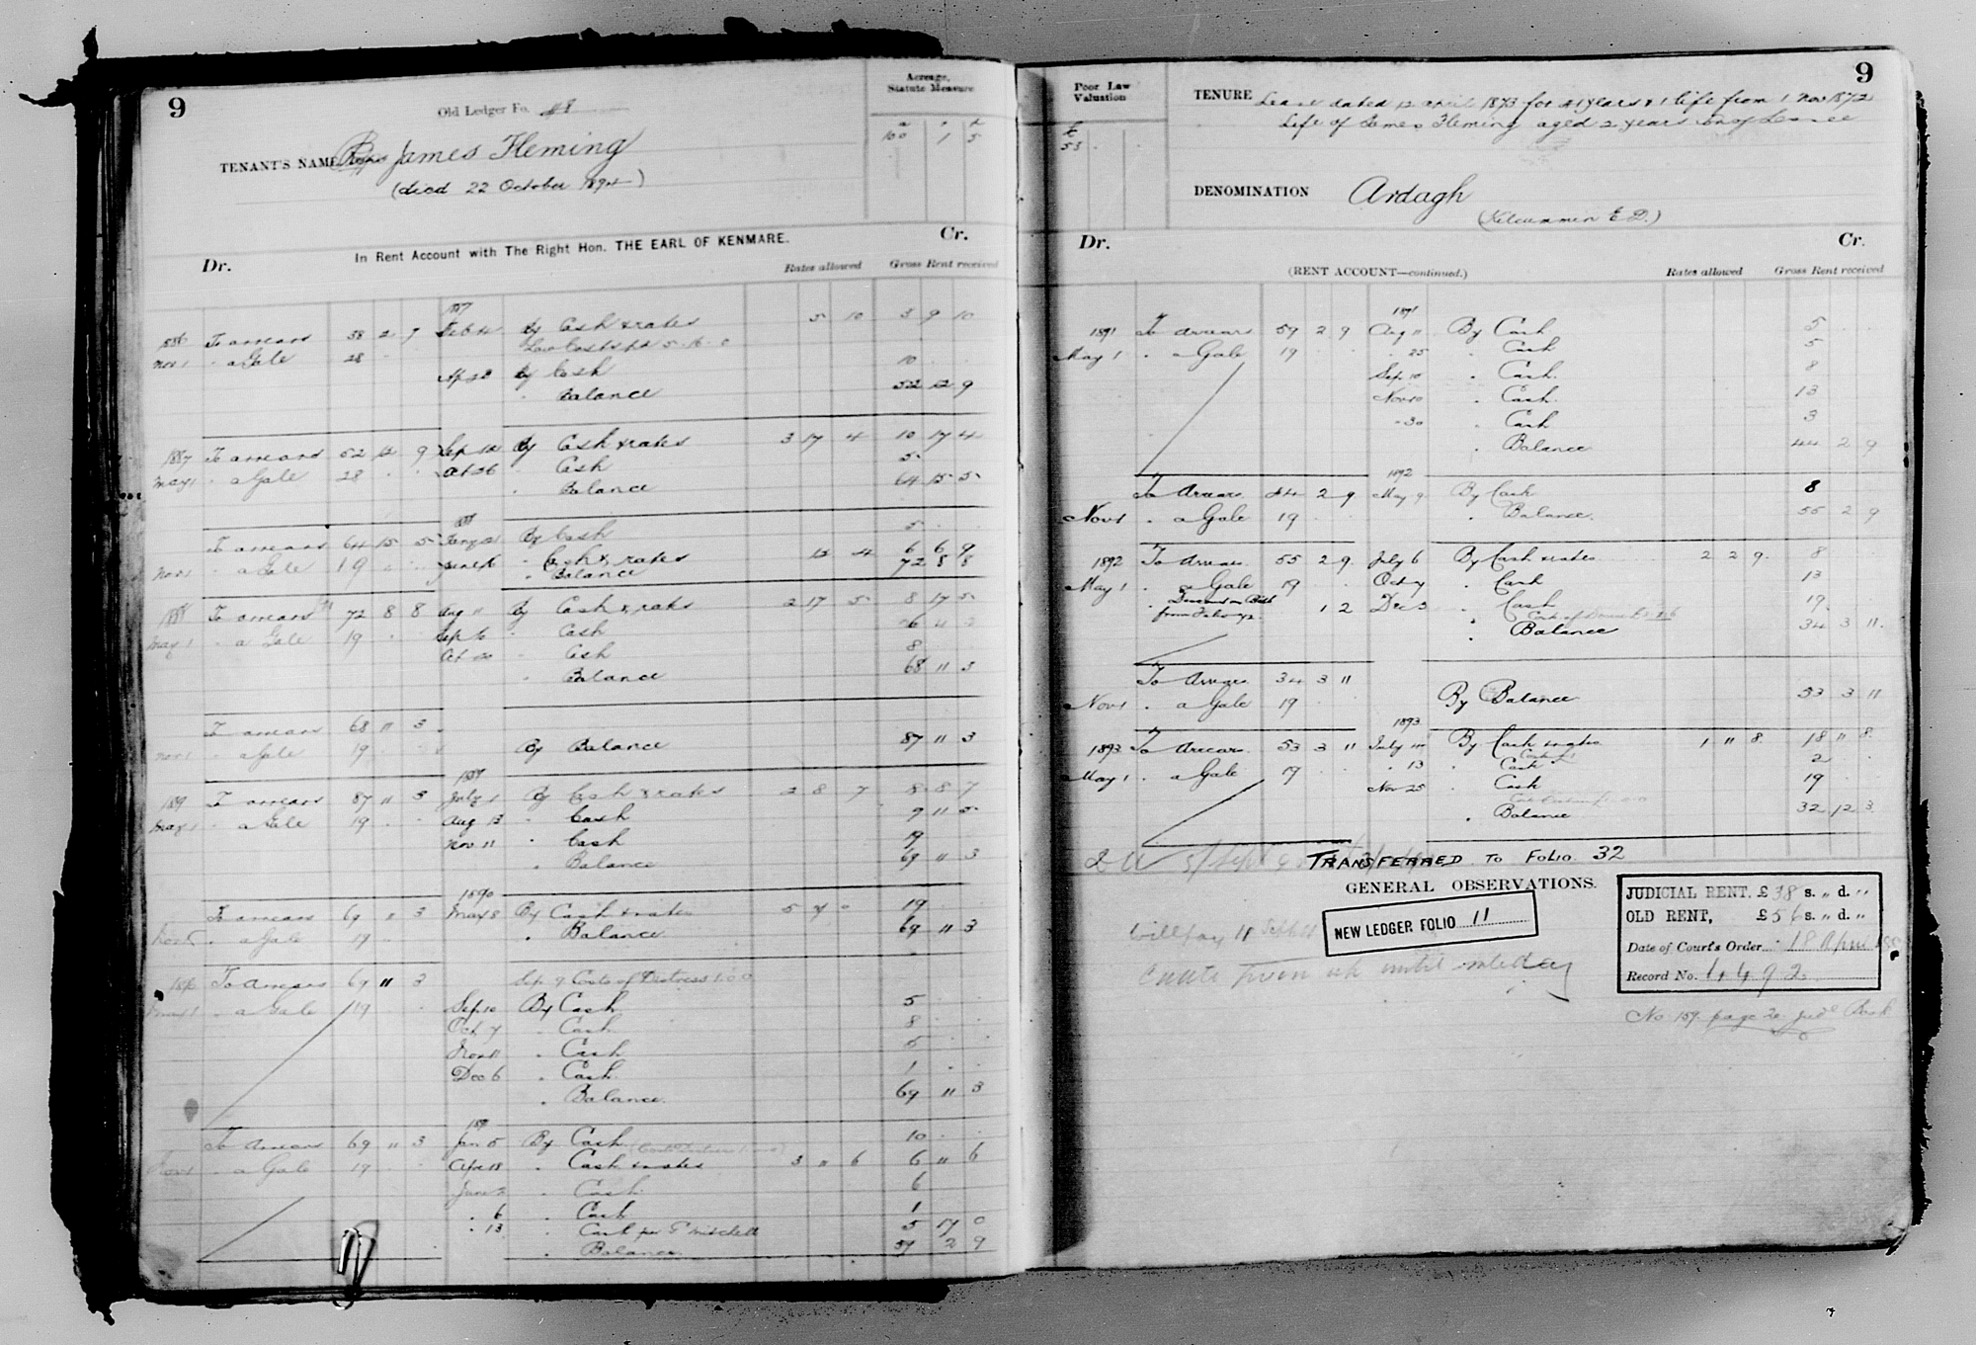 9
Old Ledger Fo. 48
Acreage, Statute Measure
a r p
100 1 5
TENANT'S NAME James Fleming
(died 22 October 1894)
In Rent Account with The Right Hon. THE EARL OF KENMARE.
Dr. Cr.
Rates allowed Gross Rent received
1887
1886 To arrears 58 2 7 Feb 4 By Cash & rates 5 10 3 9 10
Law Costs pd 5. 6. 0
Nov 1 " a Gale 28
Ap 28 By Cash 10
" Balance 52 12 9
1887 To arrears 52 12 9 Sep 12 By Cash & rates 3 17 4 10 17 4
May 1 " a Gale 28 Oct 26 " Cash 5
" Balance 64 15 5
1888
To arrears 64 15 5 Jany 21 By Cash 5
Nov 1 " a Gale 19 June 16 " Cash & rates 12 4 6 6 9
" Balance 72 8 8
1888 To arrears 72 8 8 Aug 11 By Cash & rates 2 17 5 8 17 5
May 1 " a Gale 19 Sep 6 " Cash
Oct 20 " Cash 8
" Balance 68 11 3
To arrears 68 11 3
Nov 1 " a Gale 19 By Balance 87 11 3
1889
1889 To arrears 87 11 3 July 1 By Cash & rates 2 8 7 8 8 7
May 1 " a Gale 19 Aug 13 " Cash 9 11 5
Nov 11 " Cash 19
" Balance 69 11 3
1890
To arrears 69 11 3 May 8 By Cash & rates 5 4 0 19
Nov 1 " a Gale 19 " Balance 69 11 3
1890 To Arrears 69 11 3 Sep 9 Costs of Distress 1.0.0
May 1 " a Gale 19 Sep 10 By Cash 5
Oct 7 " Cash 8
Nov 11 " Cash 5
Dec 6 " Cash 1
" Balance 69 11 3
1891
To Arrears 69 11 3 Jan 5 By Cash 10
Nov 1 " a Gale 19 Apr 18 " Cash & rates 3 11 6 6 11 6
June 2 " Cash 6
" 6 " Cash 1
" 13 " Cash per P Mitchell 5 17 0
" Balance 59 2 9
9
Poor Law Valuation
£
53
TENURE Lease dated 12 April 1873 for 41 years & 1 life from 1 Nov 1872
Life of James Fleming aged 2 years son of Lessee
DENOMINATION Ardagh
(Kilcummin E.D.)
Dr. Cr.
(RENT ACCOUNT—continued.) Rates allowed Gross Rent received
1891
1891 To arrears 59 2 9 Aug 11 By Cash 5
May 1 " a Gale 19 " 25 " Cash 5
Sep 10 " Cash 8
Nov 10 " Cash 13
" 30 " Cash 3
" Balance 44 2 9
1892
To Arrears 44 2 9 May 9 By Cash 8
Nov 1 " a Gale 19 " Balance 55 2 9
1892 To Arrears 55 2 9 July 6 By Cash & rates 2 2 9 8
May 1 " a Gale 19 Oct 4 " Cash 13
1 2 Dec 3 " Cash 19
" Balance 34 3 11
To Arrears 34 3 11
Nov 1 " a Gale 19 By Balance 53 3 11
1893
1893 To Arrears 53 3 11 July 4 By Cash & rates 1 11 8 18 11 8
May 1 " a Gale 19 " 13 " Cash 2
Nov 25 " Cash 19
" Balance 32 12 3
TRANSFERRED TO FOLIO 32
GENERAL OBSERVATIONS.
Will pay 11 Sept
NEW LEDGER FOLIO 11
JUDICIAL RENT, £38 s. " d. "
OLD RENT, £56 s. " d. "
Date of Court's Order 18 April
Record No. 1492
No 159 page 20 Judl Book